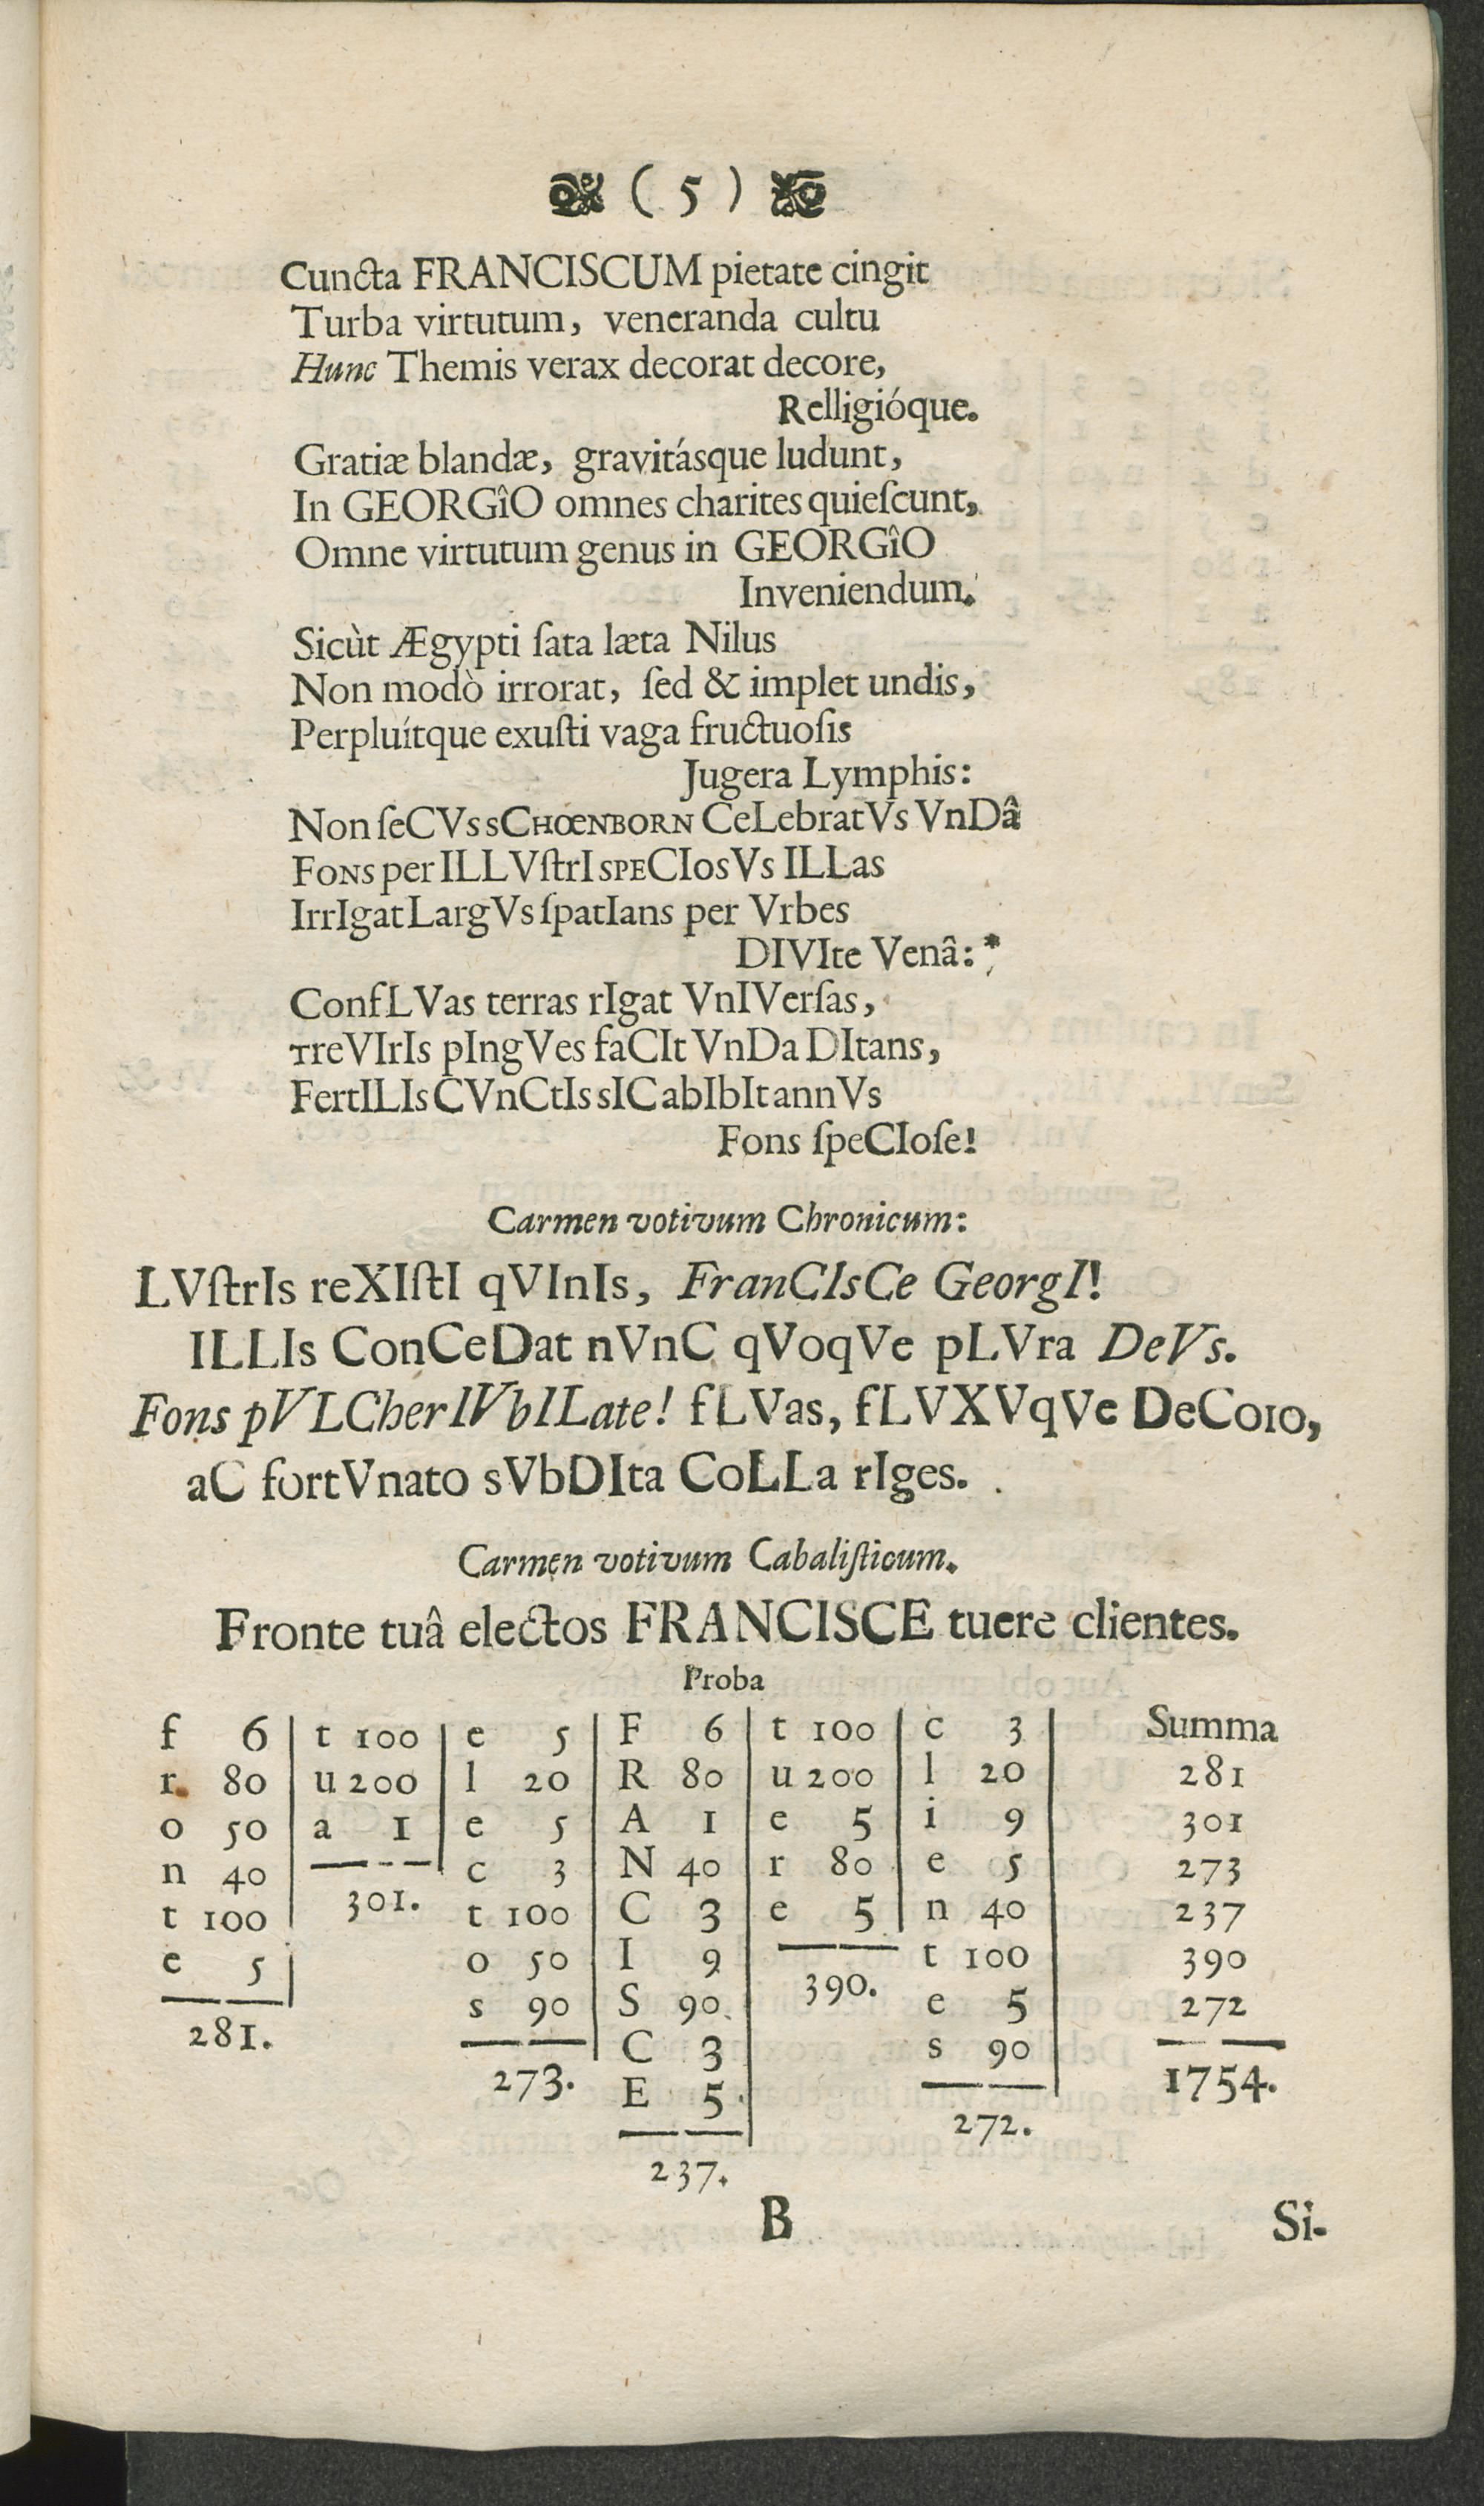 ( 5 )
Cuncta FRANCISCUM pietate cingit
Turba virtutum, veneranda cultu
Hunc Themis verax decorat decore,
Relligióque.
Gratiæ blandæ, gravitásque ludunt,
In GEORGîO omnes charites quieſcunt,
Omne virtutum genus in GEORGîO
Inveniendum.
Sicùt Ægypti ſata læta Nilus
Non modò irrorat, ſed & implet undis,
Perpluítque exuſti vaga fructuoſis
Jugera Lymphis:
Non ſeCVs sCHOENBORN CeLebratVs VnDâ
FONS per ILLVſtrI SPECIosVs ILLas
IrrIgat LargVs ſpatIans per Vrbes
DIVIte Venâ: *
ConfLVas terras rIgat VnIVerſas,
TreVIrIs pIngVes faCIt VnDa DItans,
FertILIs CVnCtIs sIC abIbIt annVs
Fons ſpeCIoſe!
Carmen votivum Chronicum:
LVſtrIs reXIſtI qVInIs, FranCIsCe GeorgI!
ILLIs ConCeDat nVnC qVoqVe pLVra DeVs.
Fons pVLCher IVbILate! fLVas, fLVXVqVe DeCoIo,
aC fortVnato sVbDIta CoLLa rIges.
Carmen votivum Cabaliſticum.
Fronte tuâ electos FRANCISCE tuere clientes.
Proba
f 6 | t 100 | e 5 | F 6 | t 100 | c 3 | Summa
r 80 | u 200 | l 20 | R 80 | u 200 | l 20 | 281
o 50 | a 1 | e 5 | A 1 | e 5 | i 9 | 301
n 40 | c 3 | N 40 | r 80 | e 5 | 273
t 100 | 301. t 100 | C 3 | e 5 | n 40 | 237
e 5 | o 50 | I 9 | t 100 | 390
281. s 90 | S 90 | 390. e 5 | 272
273. C 3 | s 90 | 1754.
E 5 | 272.
237.
B Si-